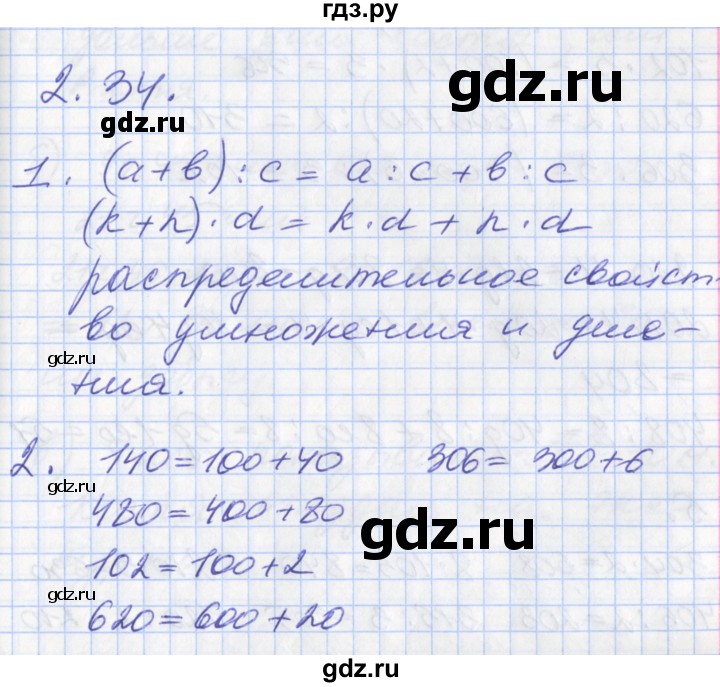 гдз.ру
2.34.
gdz.ru
gdz.ru
1. (a+b):c = a:c+b:c
(k+n)·d = k·d+n·d
распределительное свойст
во умножения и деле-
gdz.ru
ния.
2. 140=100+40 306=300+6
gdz.ru
480=400+80
gdz.ru
102=100+2
gdz.ru
620=600+20
gdz.ru